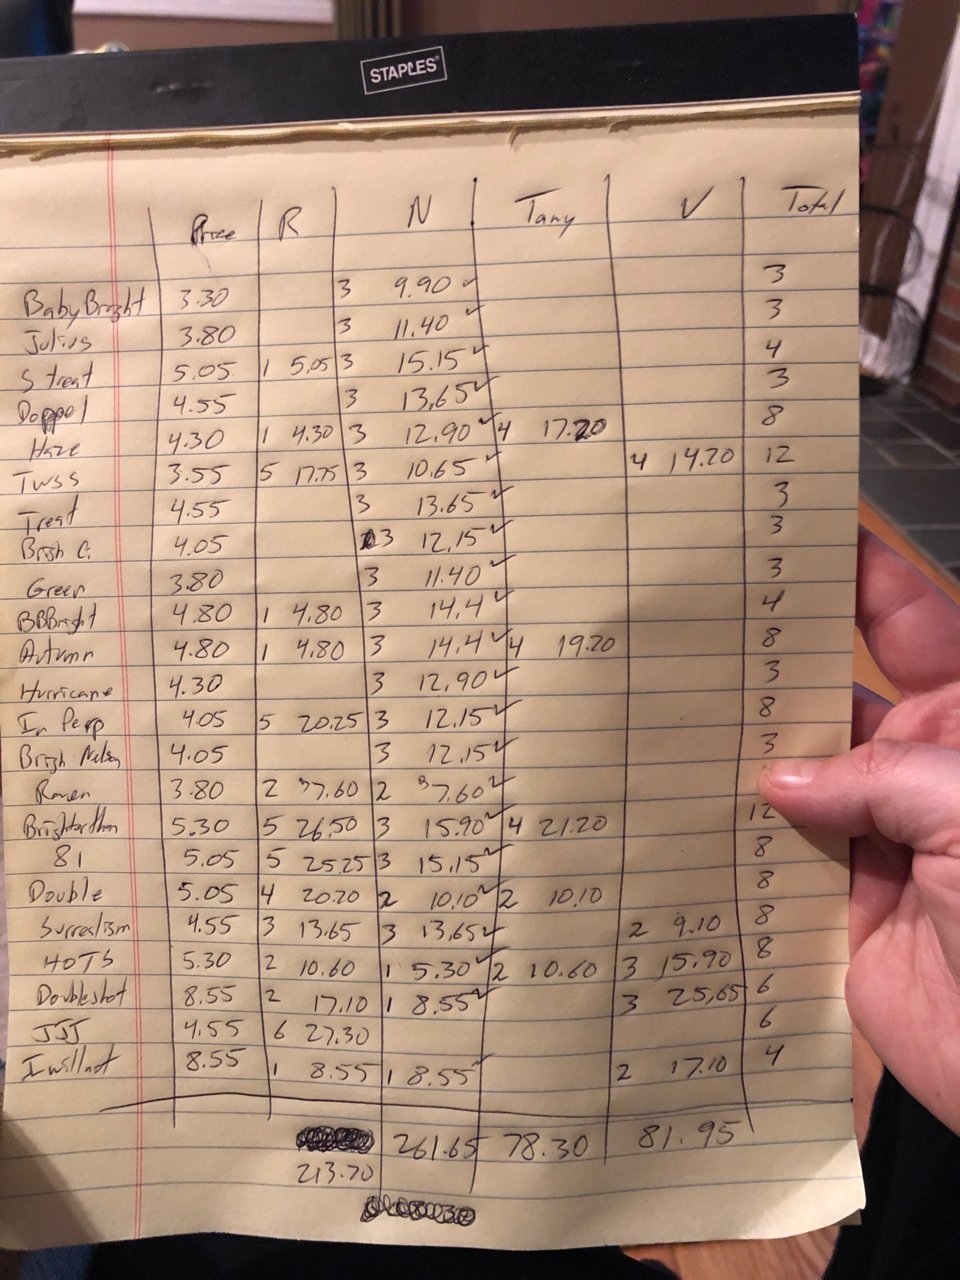 STAPLES
Price R N Tany V Total
BabyBright 3.30 3 9.90 ✓ 3
Julius 3.80 3 11.40 ✓ 3
S treat 5.05 1 5.05 3 15.15 ✓ 4
Doppel 4.55 3 13.65 ✓ 3
Haze 4.30 1 4.30 3 12.90 ✓ 4 17.20 8
Twss 3.55 5 17.75 3 10.65 ✓ 4 14.20 12
Treat 4.55 3 13.65 ✓ 3
Brigh C. 4.05 3 12.15 ✓ 3
Green 3.80 3 11.40 ✓ 3
BBBright 4.80 1 4.80 3 14.4 ✓ 4
Autumn 4.80 1 4.80 3 14.4 ✓ 4 19.20 8
Hurricane 4.30 3 12.90 ✓ 3
In Perp 4.05 5 20.25 3 12.15 ✓ 8
Brigh Nelson 4.05 3 12.15 ✓ 3
Raven 3.80 2 7.60 2 7.60 ✓
Brighterthn 5.30 5 26.50 3 15.90 ✓ 4 21.20 12
81 5.05 5 25.25 3 15.15 ✓ 8
Double 5.05 4 20.20 2 10.10 ✓ 2 10.10 8
Surrealism 4.55 3 13.65 3 13.65 ✓ 2 9.10 8
HOTS 5.30 2 10.60 1 5.30 ✓ 2 10.60 3 15.90 8
Doubleshot 8.55 2 17.10 1 8.55 ✓ 3 25.65 6
JJJ 4.55 6 27.30 6
Iwillnot 8.55 1 8.55 1 8.55 ✓ 2 17.10 4
261.65 78.30 81.95
213.70